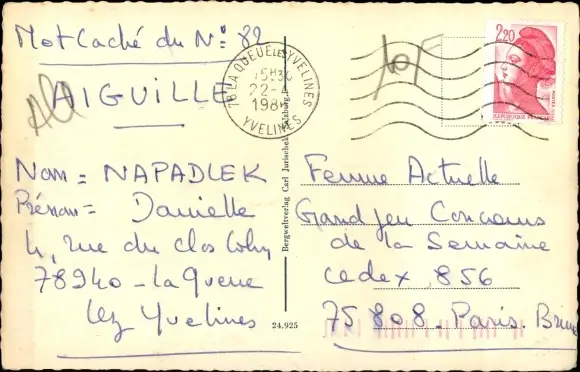 Mot Caché du N° 82
AIGUILLE
Nom = NAPADLEK
Prénom = Danielle
4, rue du clos
78940 - La Queue
lez Yvelines
78 LA QUEUE LES YVELINES
15H30
22-
YVELINES
Bergweltverlag Carl Jurischek
24.925
2,20
REPUBLIQUE FRANÇAISE
Femme Actuelle
Grand Jeu Concours
de la Semaine
cedex 856
75808 - Paris. Brune